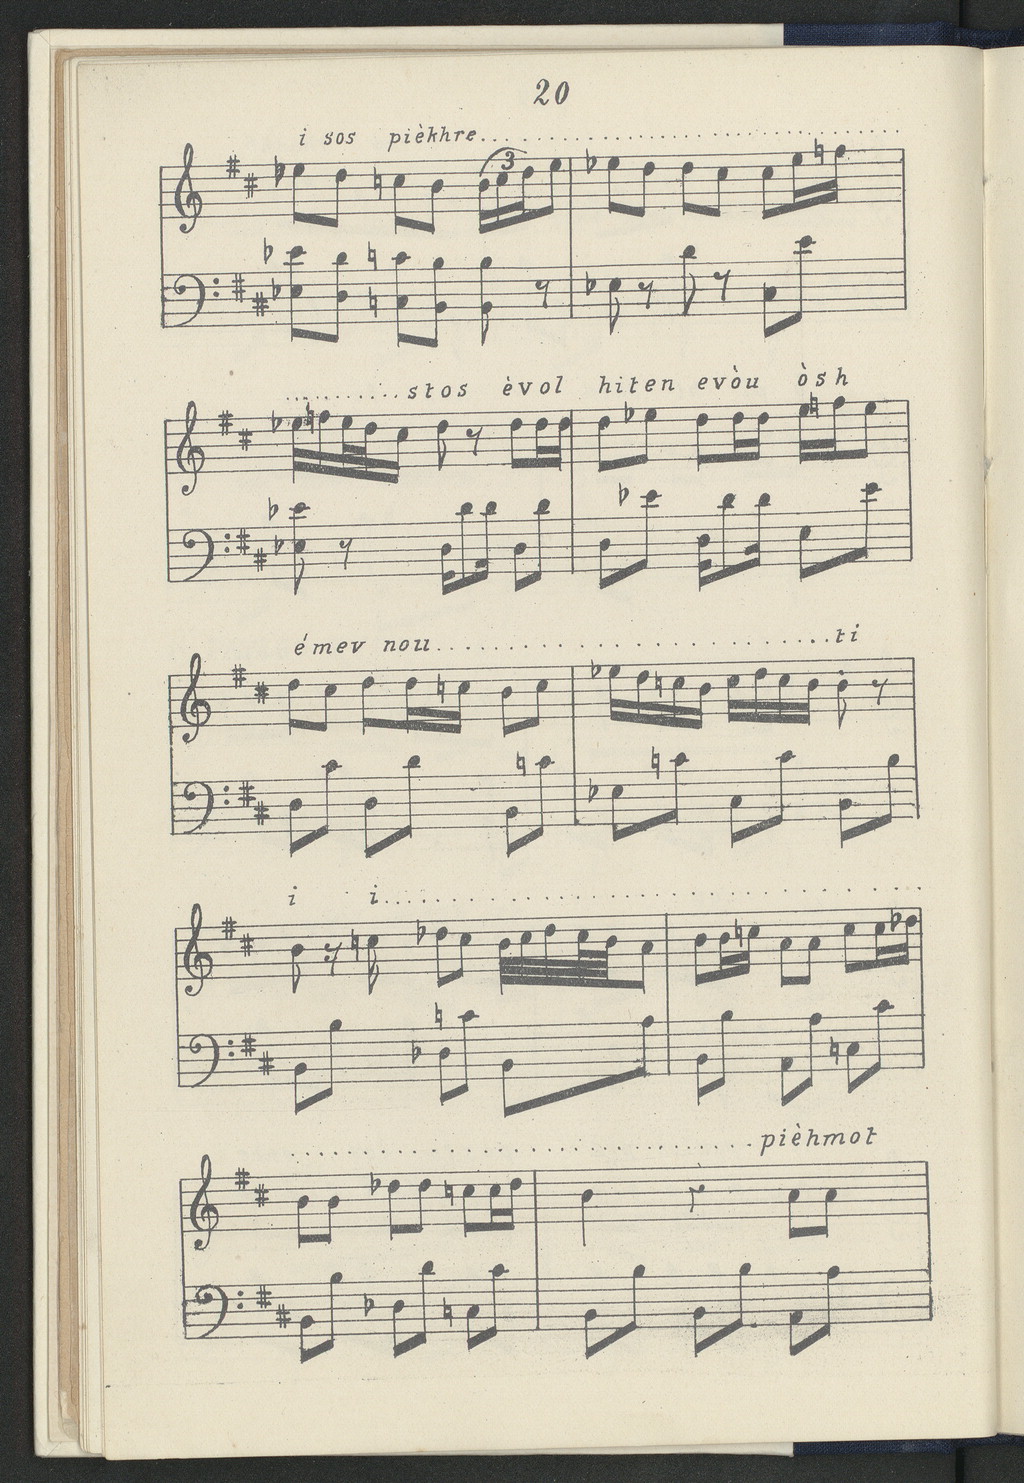 20
i sos pièkhre
3
stos èvol hiten evòu òsh
émev nou ti
i i
pièhmot